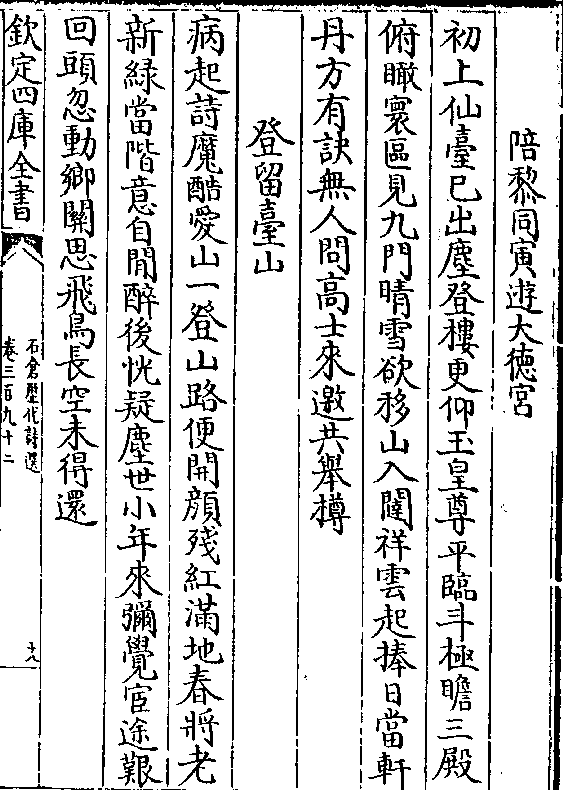 陪黎同寅遊大徳宫
初上仙臺已出塵登樓更仰玉皇尊平臨斗極瞻三殿
俯瞰寰區見九門晴雪欲移山入闥祥雲起捧日當軒
丹方有訣無人問高士來邀共舉樽
登留臺山
病起詩魔酷愛山一登山路便開顔殘紅滿地春將老
新綠當階意自閒醉後恍疑塵世小年來彌覺宦途艱
回頭忽動鄉關思飛鳥長空未得還
欽定四庫全書
石倉歷代詩選
卷三百九十二
十九